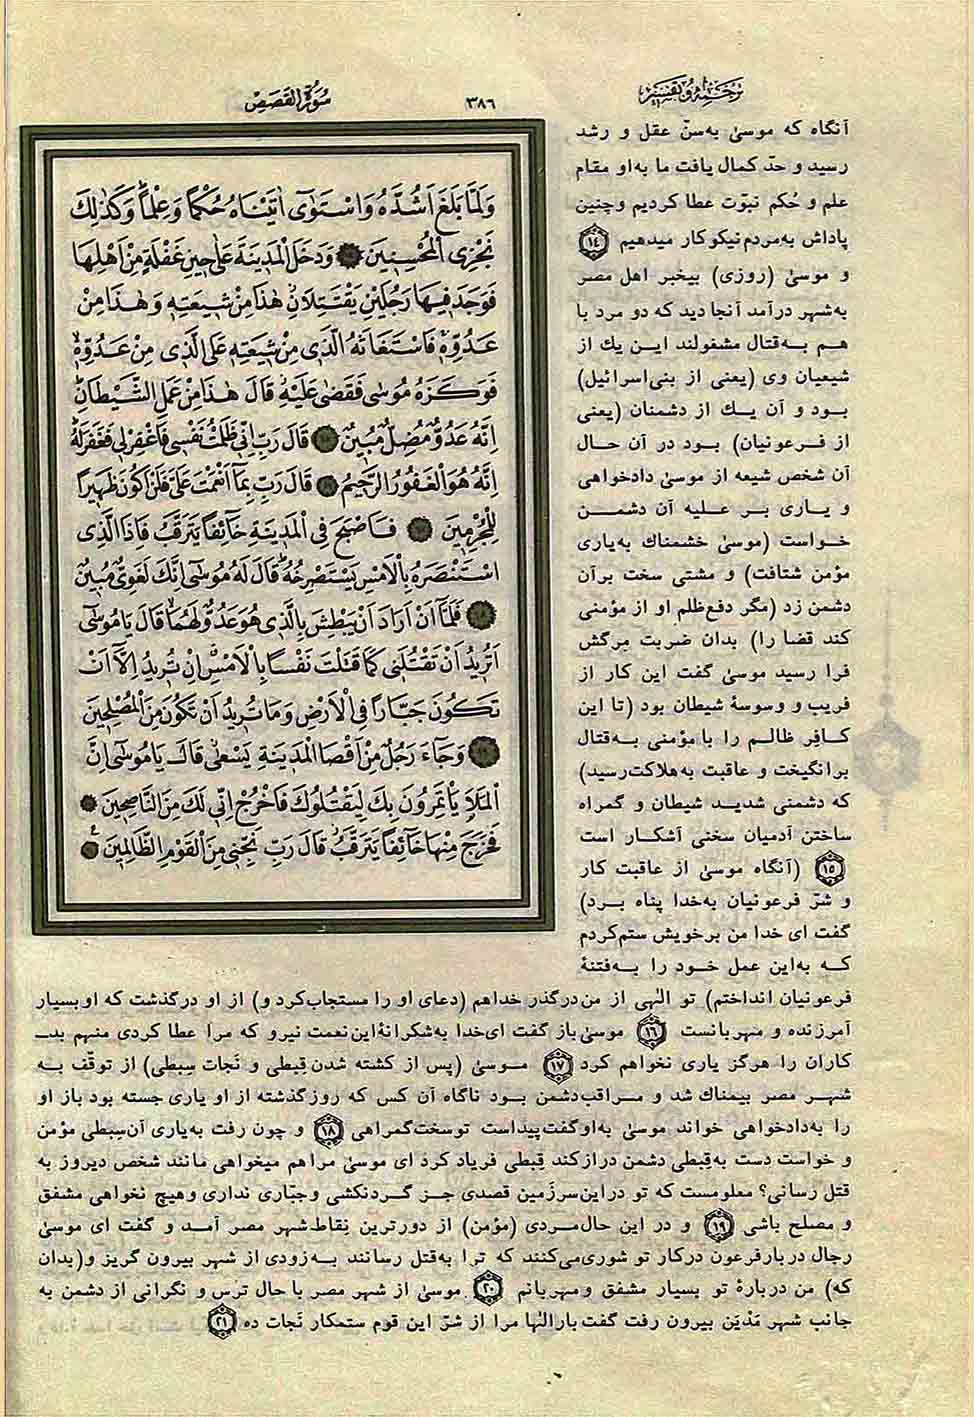 ترجمه و تفسیر
۳۸۶
سورة القصص
وَلَمَّا بَلَغَ اَشُدَّهُ وَاسْتَوٰٓى اٰتَيْنَاهُ حُكْمًا وَعِلْمًا وَكَذٰلِكَ
نَجْزِى الْمُحْسِنِينَ ۝ وَدَخَلَ الْمَدِينَةَ عَلٰى حِينِ غَفْلَةٍ مِنْ اَهْلِهَا
فَوَجَدَ فِيهَا رَجُلَيْنِ يَقْتَتِلَانِ هٰذَا مِنْ شِيعَتِهِ وَهٰذَا مِنْ
عَدُوِّهِ فَاسْتَغَاثَهُ الَّذِى مِنْ شِيعَتِهِ عَلَى الَّذِى مِنْ عَدُوِّهِ
فَوَكَزَهُ مُوسٰى فَقَضٰى عَلَيْهِ قَالَ هٰذَا مِنْ عَمَلِ الشَّيْطَانِ
اِنَّهُ عَدُوٌّ مُضِلٌّ مُبِينٌ ۝ قَالَ رَبِّ اِنِّى ظَلَمْتُ نَفْسِى فَاغْفِرْلِى فَغَفَرَلَهُ
اِنَّهُ هُوَ الْغَفُورُ الرَّحِيمُ ۝ قَالَ رَبِّ بِمَٓا اَنْعَمْتَ عَلَىَّ فَلَنْ اَكُونَ ظَهِيرًا
لِلْمُجْرِمِينَ ۝ فَاَصْبَحَ فِى الْمَدِينَةِ خَٓائِفًا يَتَرَقَّبُ فَاِذَا الَّذِى
اسْتَنْصَرَهُ بِالْاَمْسِ يَسْتَصْرِخُهُ قَالَ لَهُ مُوسٰٓى اِنَّكَ لَغَوِىٌّ مُبِينٌ
۝ فَلَمَّٓا اَنْ اَرَادَ اَنْ يَبْطِشَ بِالَّذِى هُوَ عَدُوٌّ لَهُمَا قَالَ يَا مُوسٰٓى
اَتُرِيدُ اَنْ تَقْتُلَنِى كَمَا قَتَلْتَ نَفْسًا بِالْاَمْسِ اِنْ تُرِيدُ اِلَّٓا اَنْ
تَكُونَ جَبَّارًا فِى الْاَرْضِ وَمَا تُرِيدُ اَنْ تَكُونَ مِنَ الْمُصْلِحِينَ
۝ وَجَٓاءَ رَجُلٌ مِنْ اَقْصَا الْمَدِينَةِ يَسْعٰى قَالَ يَا مُوسٰٓى اِنَّ
الْمَلَاَ يَاْتَمِرُونَ بِكَ لِيَقْتُلُوكَ فَاخْرُجْ اِنِّى لَكَ مِنَ النَّاصِحِينَ ۝
فَخَرَجَ مِنْهَا خَٓائِفًا يَتَرَقَّبُ قَالَ رَبِّ نَجِّنِى مِنَ الْقَوْمِ الظَّالِمِينَ ۝
آنگاه که موسیٰ به‌سنّ عقل و رشد
رسید و حدّ کمال یافت ما به‌او مقام
علم و حُکم نبوّت عطا کردیم و چنین
پاداش به‌مردم نیکوکار میدهیم ﴿۱۴﴾
و موسیٰ (روزی) بیخبر اهل مصر
به‌شهر درآمد آنجا دید که دو مرد با
هم به‌قتال مشغولند این یك از
شیعیان وی (یعنی از بنی‌اسرائیل)
بود و آن یك از دشمنان (یعنی
از فرعونیان) بود در آن حال
آن شخص شیعه از موسیٰ دادخواهی
و یاری بر علیه آن دشمن
خواست (موسیٰ خشمناك به‌یاری
مؤمن شتافت) و مشتی سخت برآن
دشمن زد (مگر دفع‌ظلم او از مؤمنی
کند قضا را) بدان ضربت مرگش
فرا رسید موسیٰ گفت این کار از
فریب و وسوسهٔ شیطان بود (تا این
کافِر ظالم را با مؤمنی به‌قتال
برانگیخت و عاقبت به‌هلاکت‌رسید)
که دشمنی شدید شیطان و گمراه
ساختن آدمیان سخنی آشکار است
﴿۱۵﴾ (آنگاه موسیٰ از عاقبت کار
و شرّ فرعونیان به‌خدا پناه برد)
گفت ای خدا من برخویش ستم‌کردم
که به‌این عمل خود را به‌فتنهٔ
فرعونیان انداختم) تو الٰهی از من‌درگذر خداهم (دعای او را مستجاب‌کرد و) از او درگذشت که او بسیار
آمرزنده و مهربانست ﴿۱۶﴾ موسیٰ باز گفت ای‌خدا به‌شکرانهٔ این‌نعمت نیرو که مرا عطا کردی منهم بدـ
کاران را هرگز یاری نخواهم کرد ﴿۱۷﴾ موسیٰ (پس از کشته شدن قِبطی و نَجات سِبطی) از توقّف به
شهر مصر بیمناك شد و مراقب‌دشمن بود ناگاه آن کس که روزگذشته از او یاری جسته بود باز او
را به‌دادخواهی خواند موسیٰ به‌اوگفت‌پیداست توسخت‌گمراهی ﴿۱۸﴾ و چون رفت به‌یاری آن‌سِبطی مؤمن
و خواست دست به‌قِبطی دشمن درازکند قِبطی فریاد کرد ای موسیٰ مراهم میخواهی مانند شخص دیروز به
قتل رسانی؟ معلومست که تو دراین‌سرزَمین قصدی جز گردنکشی و جبّاری نداری و هیچ نخواهی مشفق
و مصلح باشی ﴿۱۹﴾ و در این حال‌مردی (مؤمن) از دورترین نِقاط‌شهر مصر آمد و گفت ای موسیٰ
رجال دربارفرعون درکار تو شوری‌می‌کنند که ترا به‌قتل رسانند به‌زودی از شهر بیرون گریز و(بدان
که) من دربارهٔ تو بسیار مشفق و مهربانم ﴿۲۰﴾ موسیٰ از شهر مصر با حال ترس و نگرانی از دشمن به
جانب شهر مَدیَن بیرون رفت گفت بارالٰها مرا از شرّ این قوم ستمکار نَجات ده ﴿۲۱﴾